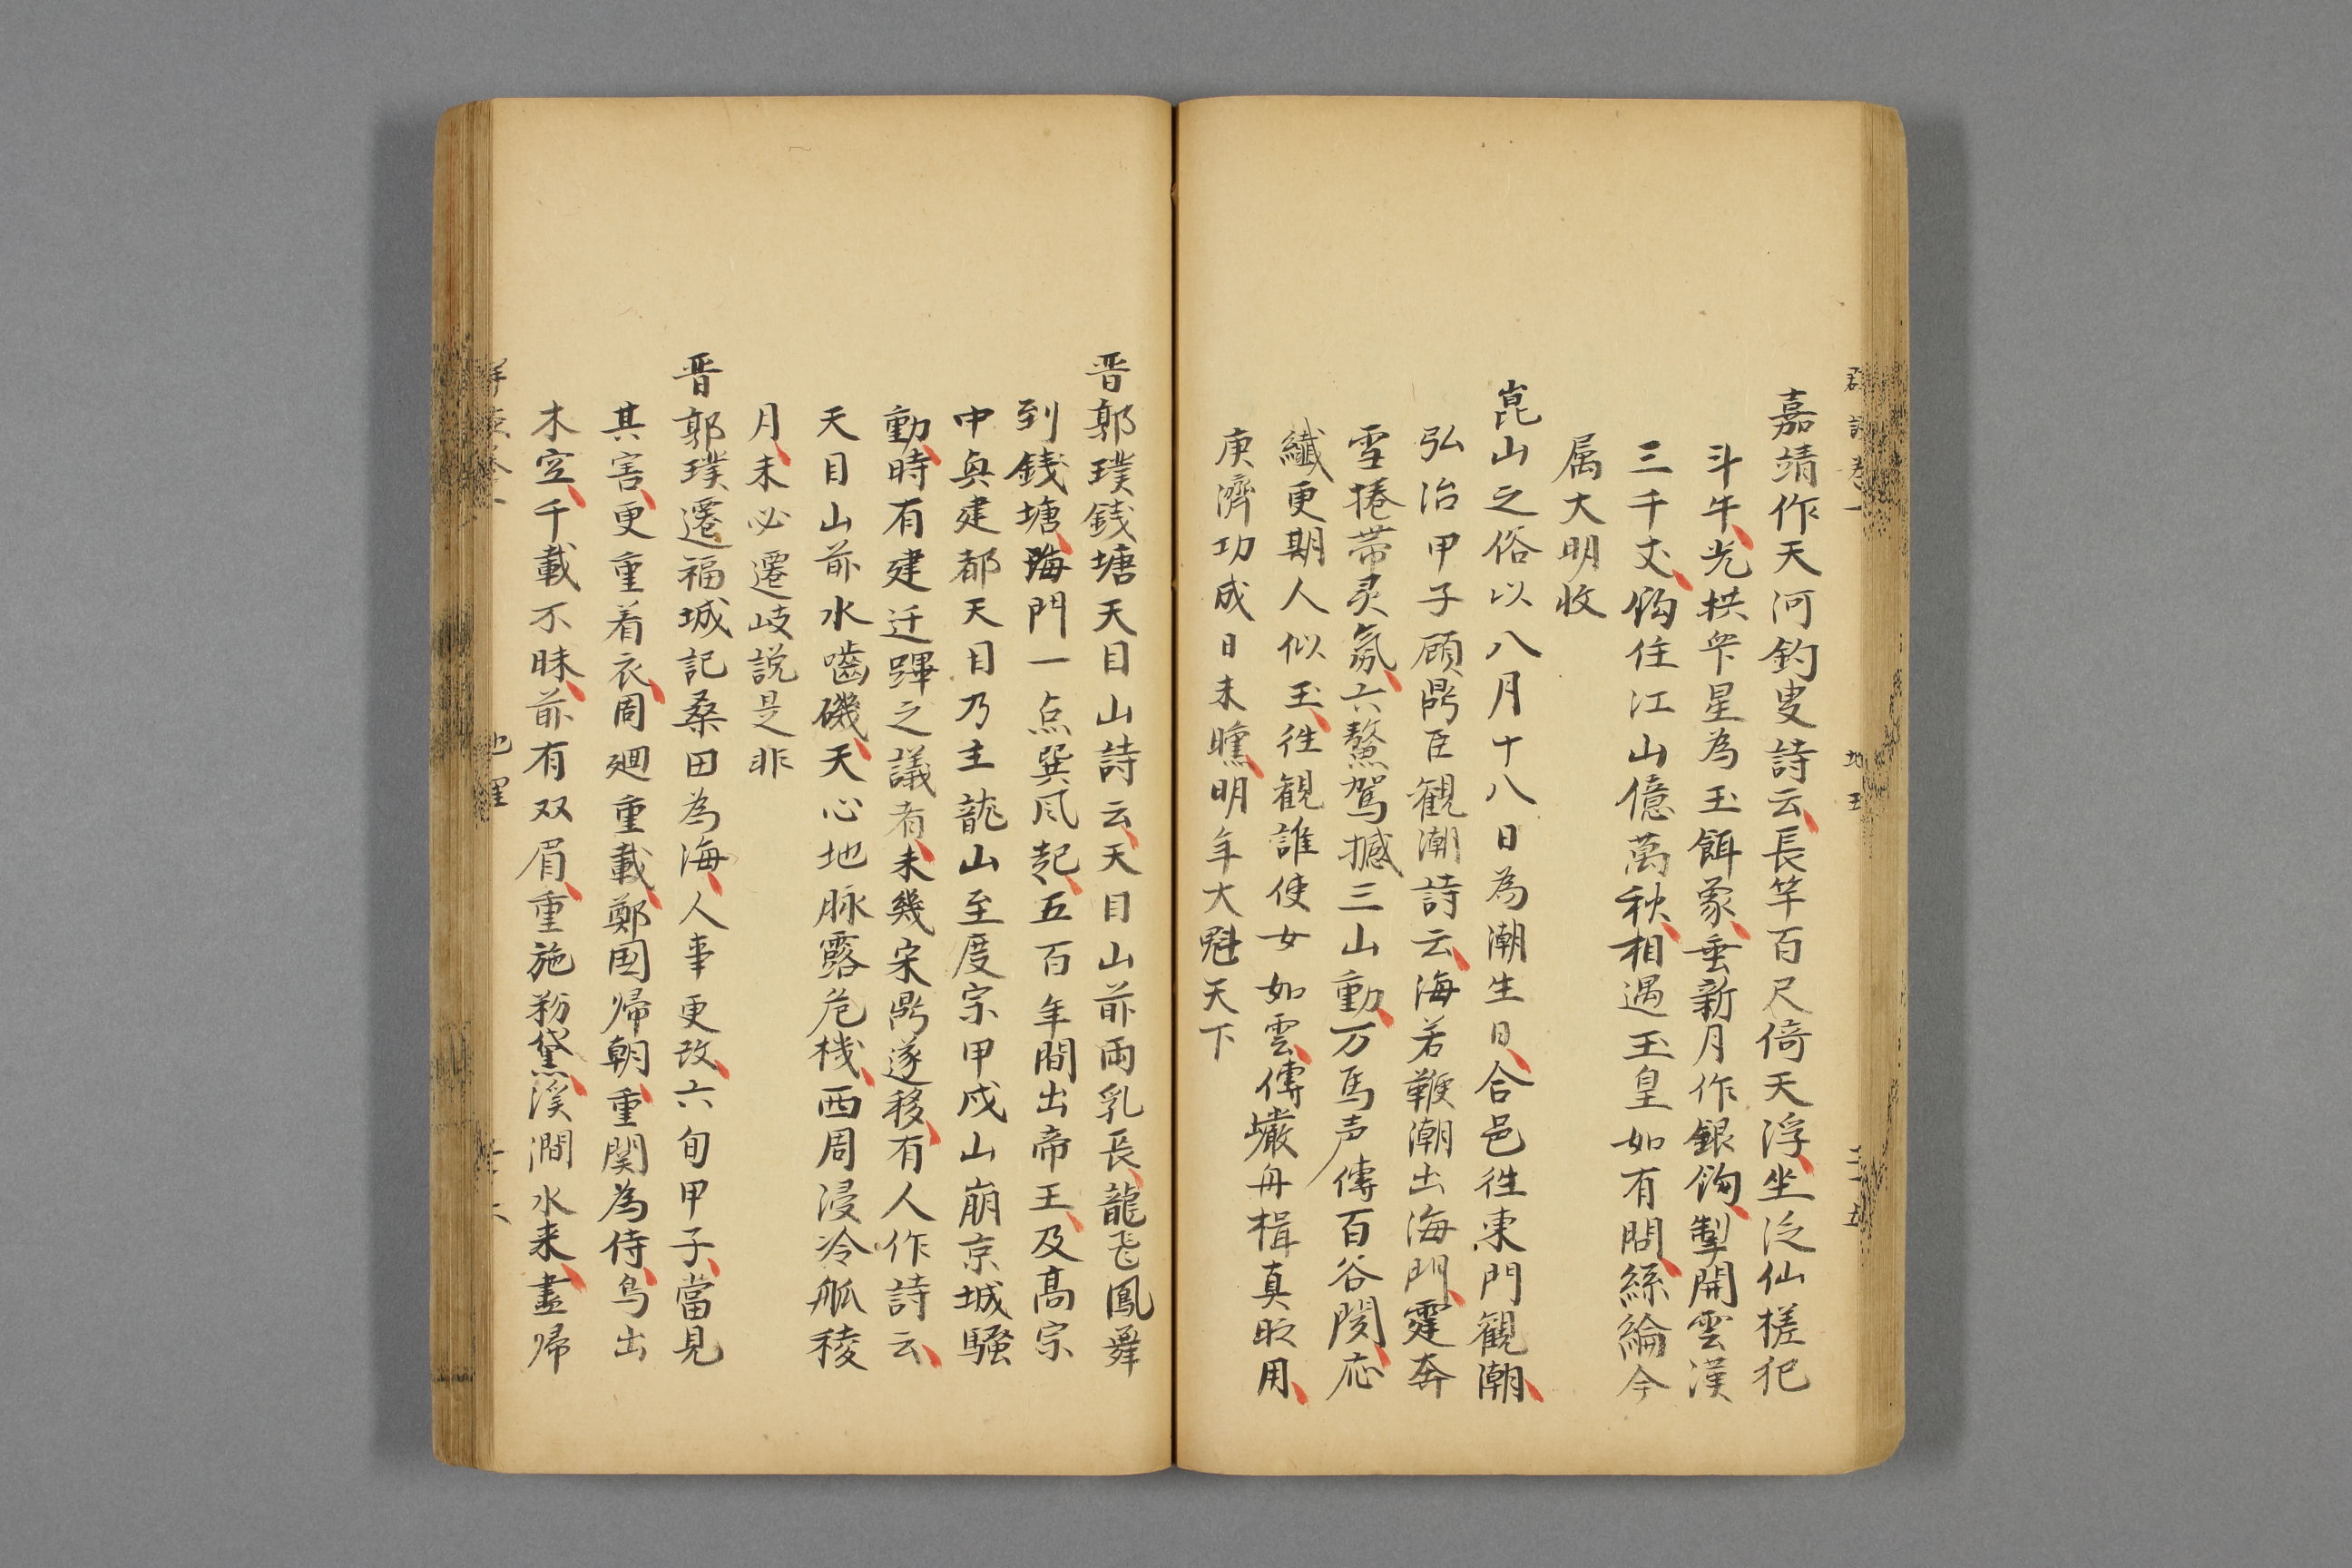 嘉靖作天河釣叟詩云長竿百尺倚天浮坐泛仙槎犯
斗牛光拱眾星為玉餌象垂新月作銀鈎掣開雲漢
三千丈鈎住江山億萬秋相遇玉皇如有問絲綸今
属大明收
崑山之俗以八月十八日為潮生日合邑徃東門觀潮
弘治甲子顧鼎臣觀潮詩云海若鞭潮出海門霆奔
雪捲帯灵氛六鰲駕撼三山動万馬声傳百谷閧応
纖更期人似玉徃観誰使女如雲傳巖舟楫真时用
庚濟功成日未曛明年大魁天下
晋郭璞銭塘天目山詩云天目山前両乳長龍飞鳳舞
到銭塘海門一点巽风起五百年間出帝王及高宗
中興建都天目乃主龍山至度宗甲戍山崩京城騷
動時有建迁蹕之議者未幾宋鼎遂移有人作詩云
天目山前水嚙磯天心地脉露危機西周浸冷觚稜
月未必遷岐説是非
晋郭璞遷福城記桑田為海人事更改六旬甲子當見
其害更重着衣周廻重載鄭国帰朝重関為侍鸟出
木空千載不昧前有双眉重施粉黛溪澗水来盡帰